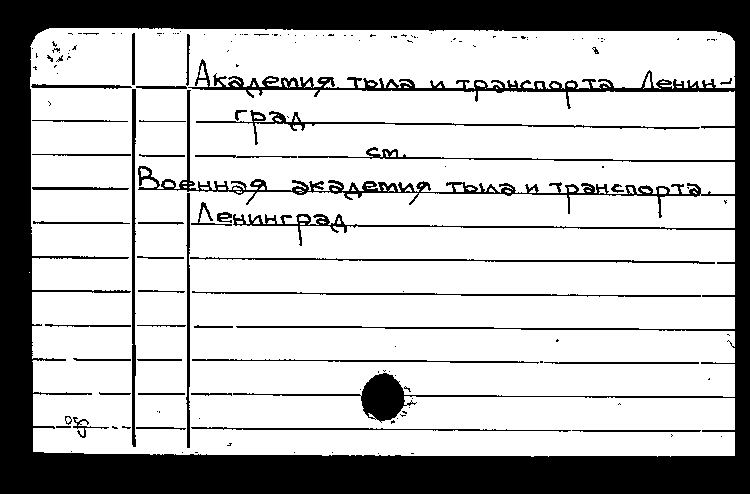 Академия тыла и транспорта. Ленин-
град.
см.
Военная академия тыла и транспорта.
Ленинград.